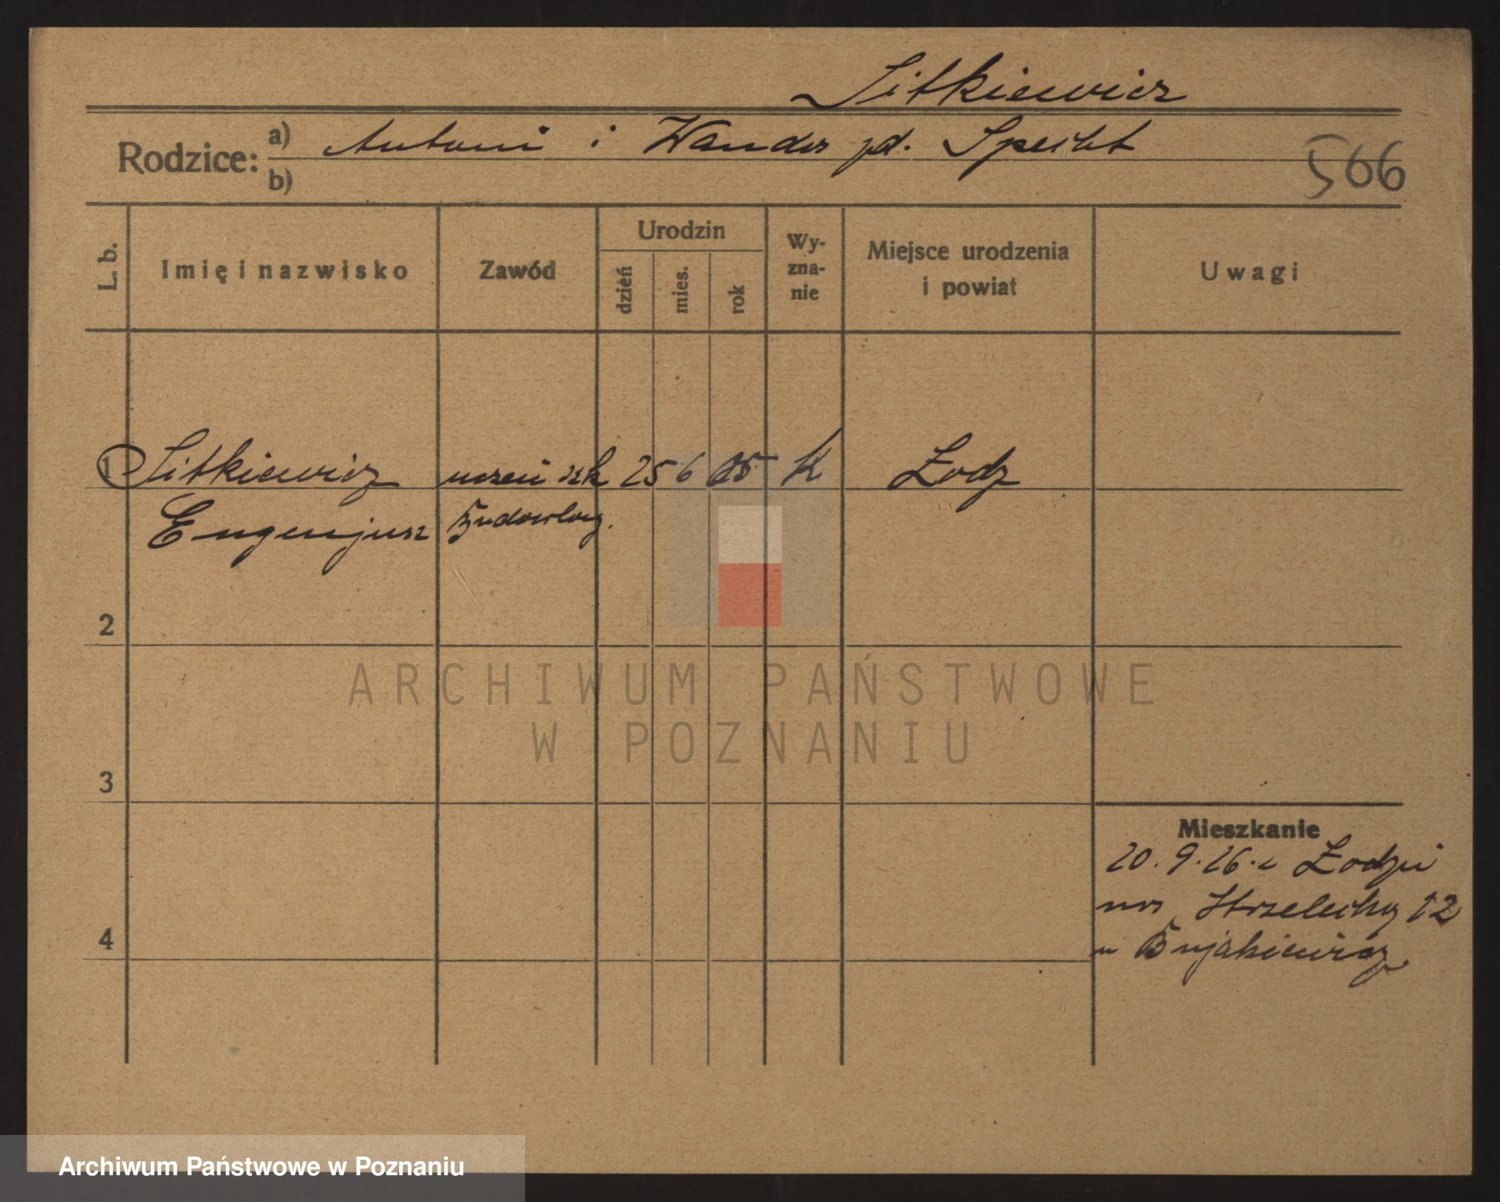 Sitkiewicz
Rodzice: a) Antoni i Wanda zd. Specht
b)
566
L. b.
Imię i nazwisko
Zawód
Urodzin
dzień
mies.
rok
Wy-
zna-
nie
Miejsce urodzenia
i powiat
Uwagi
1 Sitkiewicz uczeń szk 25 6 05 K Łodz
Eugenjusz Budowlany.
2
ARCHIWUM PAŃSTWOWE
W POZNANIU
3
Mieszkanie
20. 9. 26. z Łodzi
na Strzelecką 12
u Bujakiewicz
4
Archiwum Państwowe w Poznaniu